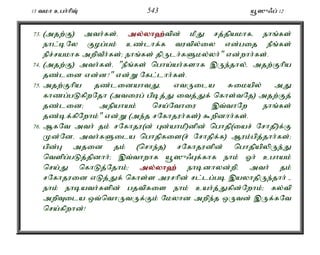 13 வமா உபர்ரிஉ 543 யூஸுஃப் 12
73. (அதற்கு) அவர்கள், அல்லாஹ்வின் மீது சத்தியமாக, நாங்கள்
நாட்டிலே குழப்பம் உண்டாக்க வரவில்லை என்பதை நீங்கள்
நிச்சயமாக அறிவீர்கள்; நாங்கள் திருடர்களுமல்லர்" என்றார்கள்.
74. (அதற்கு) அவர்கள், "நீங்கள் பொய்யர்களாக இருந்தால், அதற்குரிய
தண்டனை என்ன?" என்று கேட்டார்கள்.
75. அதற்குரிய தண்டனையாவது, எவருடைய சுமையில் அது
காணப்படுகிறதோ (அவரைப் பிடித்து வைத்துக் கொள்வதே) அதற்குத்
தண்டனை; அநியாயம் செய்வோரை இவ்வாறே நாங்கள்
தண்டிக்கிறோம்" என்று (அந்த சகோதரர்கள்) கூறினார்கள்.
76. ஆகவே அவர் தம் சகோதர(ன் புன்யாமீ)னின் பொதி(யைச் சோதி)க்கு
முன்னே, அவர்களுடைய பொதிகளை(ச் சோதிக்க) ஆரம்பித்தார்கள்;
பின்பு அதனை தம் (சொந்த) சகோதரனின் பொதியிலிருந்து
வெளிப்படுத்தினார்; இவ்வாறாக யூஸுஃபுக்காக நாம் ஓர் உபாயம்
செய்து கொடுத்தோம்; அல்லாஹ் நாடினாலன்றி, அவர் தம்
சகோதரனை எடுத்துக் கொள்ள அரசரின் சட்டப்படி இயலாதிருந்தார் -
நாம் நாடியவர்களின் பதவிகளை நாம் உயர்த்துகின்றோம்; கல்வி
அறிவுடைய ஒவ்வொருவருக்கும் மேலான அறிந்த ஒருவன் இருக்கவே
செய்கிறான்!